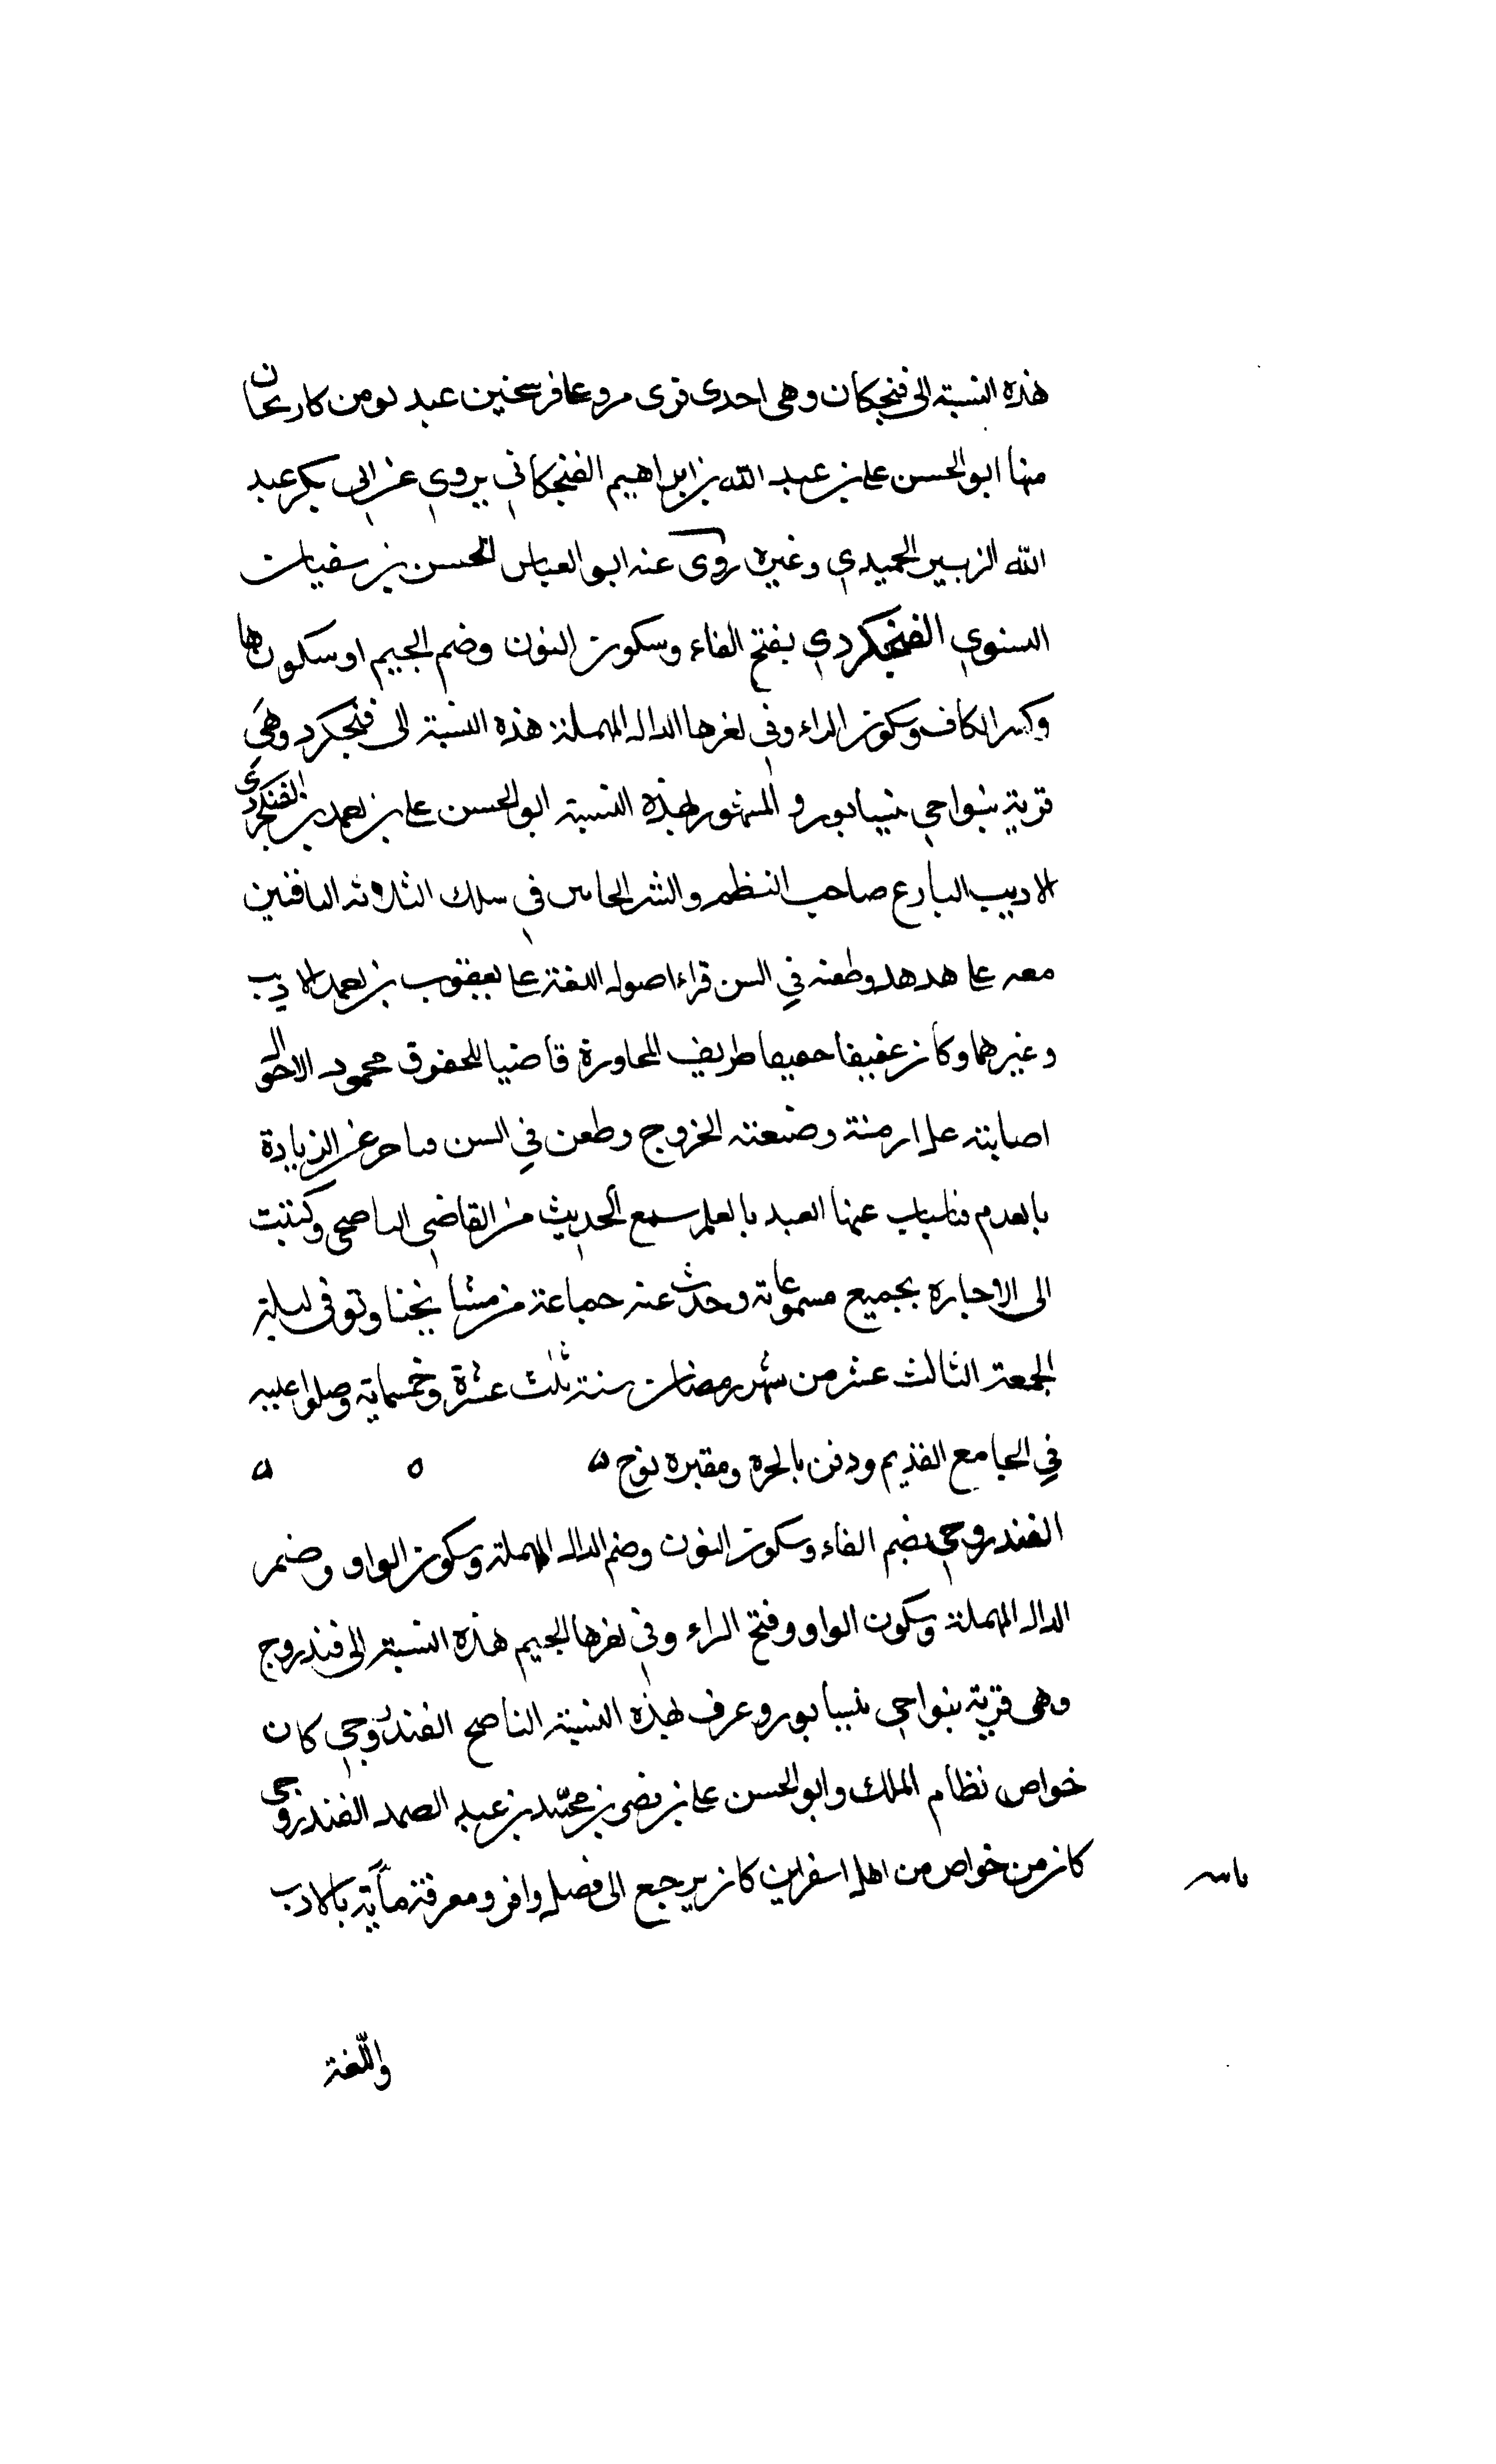 هذه النسبة الى فنجكان وهى احدى قرى مرو على فرسخين عبد لو من كان
منها ابو الحسن على بن عبد الله بن ابراهيم الفنجكاني يروي عن ابي بكر عبد
الله الزبير الحميدي وغيره روى عنه ابو العباس الحسن بن سفيان
النسوي الفنجكردي بفتح الفاء وسكون النون وضم الجيم او سكونها
وكسر الكاف وسكون الراء وفي اخرها الدال المهملة هذه النسبة الى فنجكرد وهي
قرية بنواحي نيسابور والمشهور بهذه النسبة ابو الحسن على بن احمد بن الفنجكردي
الاديب البارع صاحب النظم والنثر الجاس في سلك الثلاثة الباقين
معه على هدهد وطعنه في السن قراء اصول اللغة على يعقوب بن احمد الاديب
وغيرهما وكان عفيفا خفيفا ظريف المحاورة قاضيا للحقوق محمود الاحوال
اصابته علة ازمنته ومنعته الخروج وطعن في السن عن الزيادة
بالقدم عنها العبد بالعلم سمع الحديث من القاضي الناصحي وكتبت
الى الاجازة بجميع مسموعاته وحدث عنه جماعة من مشايخنا وتوفى ليلة
الجمعة الثالث عشر من شهر رمضان سنة ثلث عشرة وخمسماية وصلوا عليه
في الجامع القديم ودفن بالحيرة ومقبرة نوح ه ه ه
الفندروجي بضم الفاء وسكون النون وضم الدال المهملة وسكون الواو وضم
الدال المهملة وسكون الواو وفتح الراء وفي اخرها الجيم هذه النسبة الى فندروج
وهى قرية بنواحي نيسابور وعرف بهذه النسبة الناصح الفندروجي كان
خواص نظام الملك وابو الحسن على بن نصر بن محمد بن عبد الصمد الفندروجي
كان من خواص من اهل اسفراين كان يرجع الى فضل وافر ومعرفة تامة بالادب
واللغة